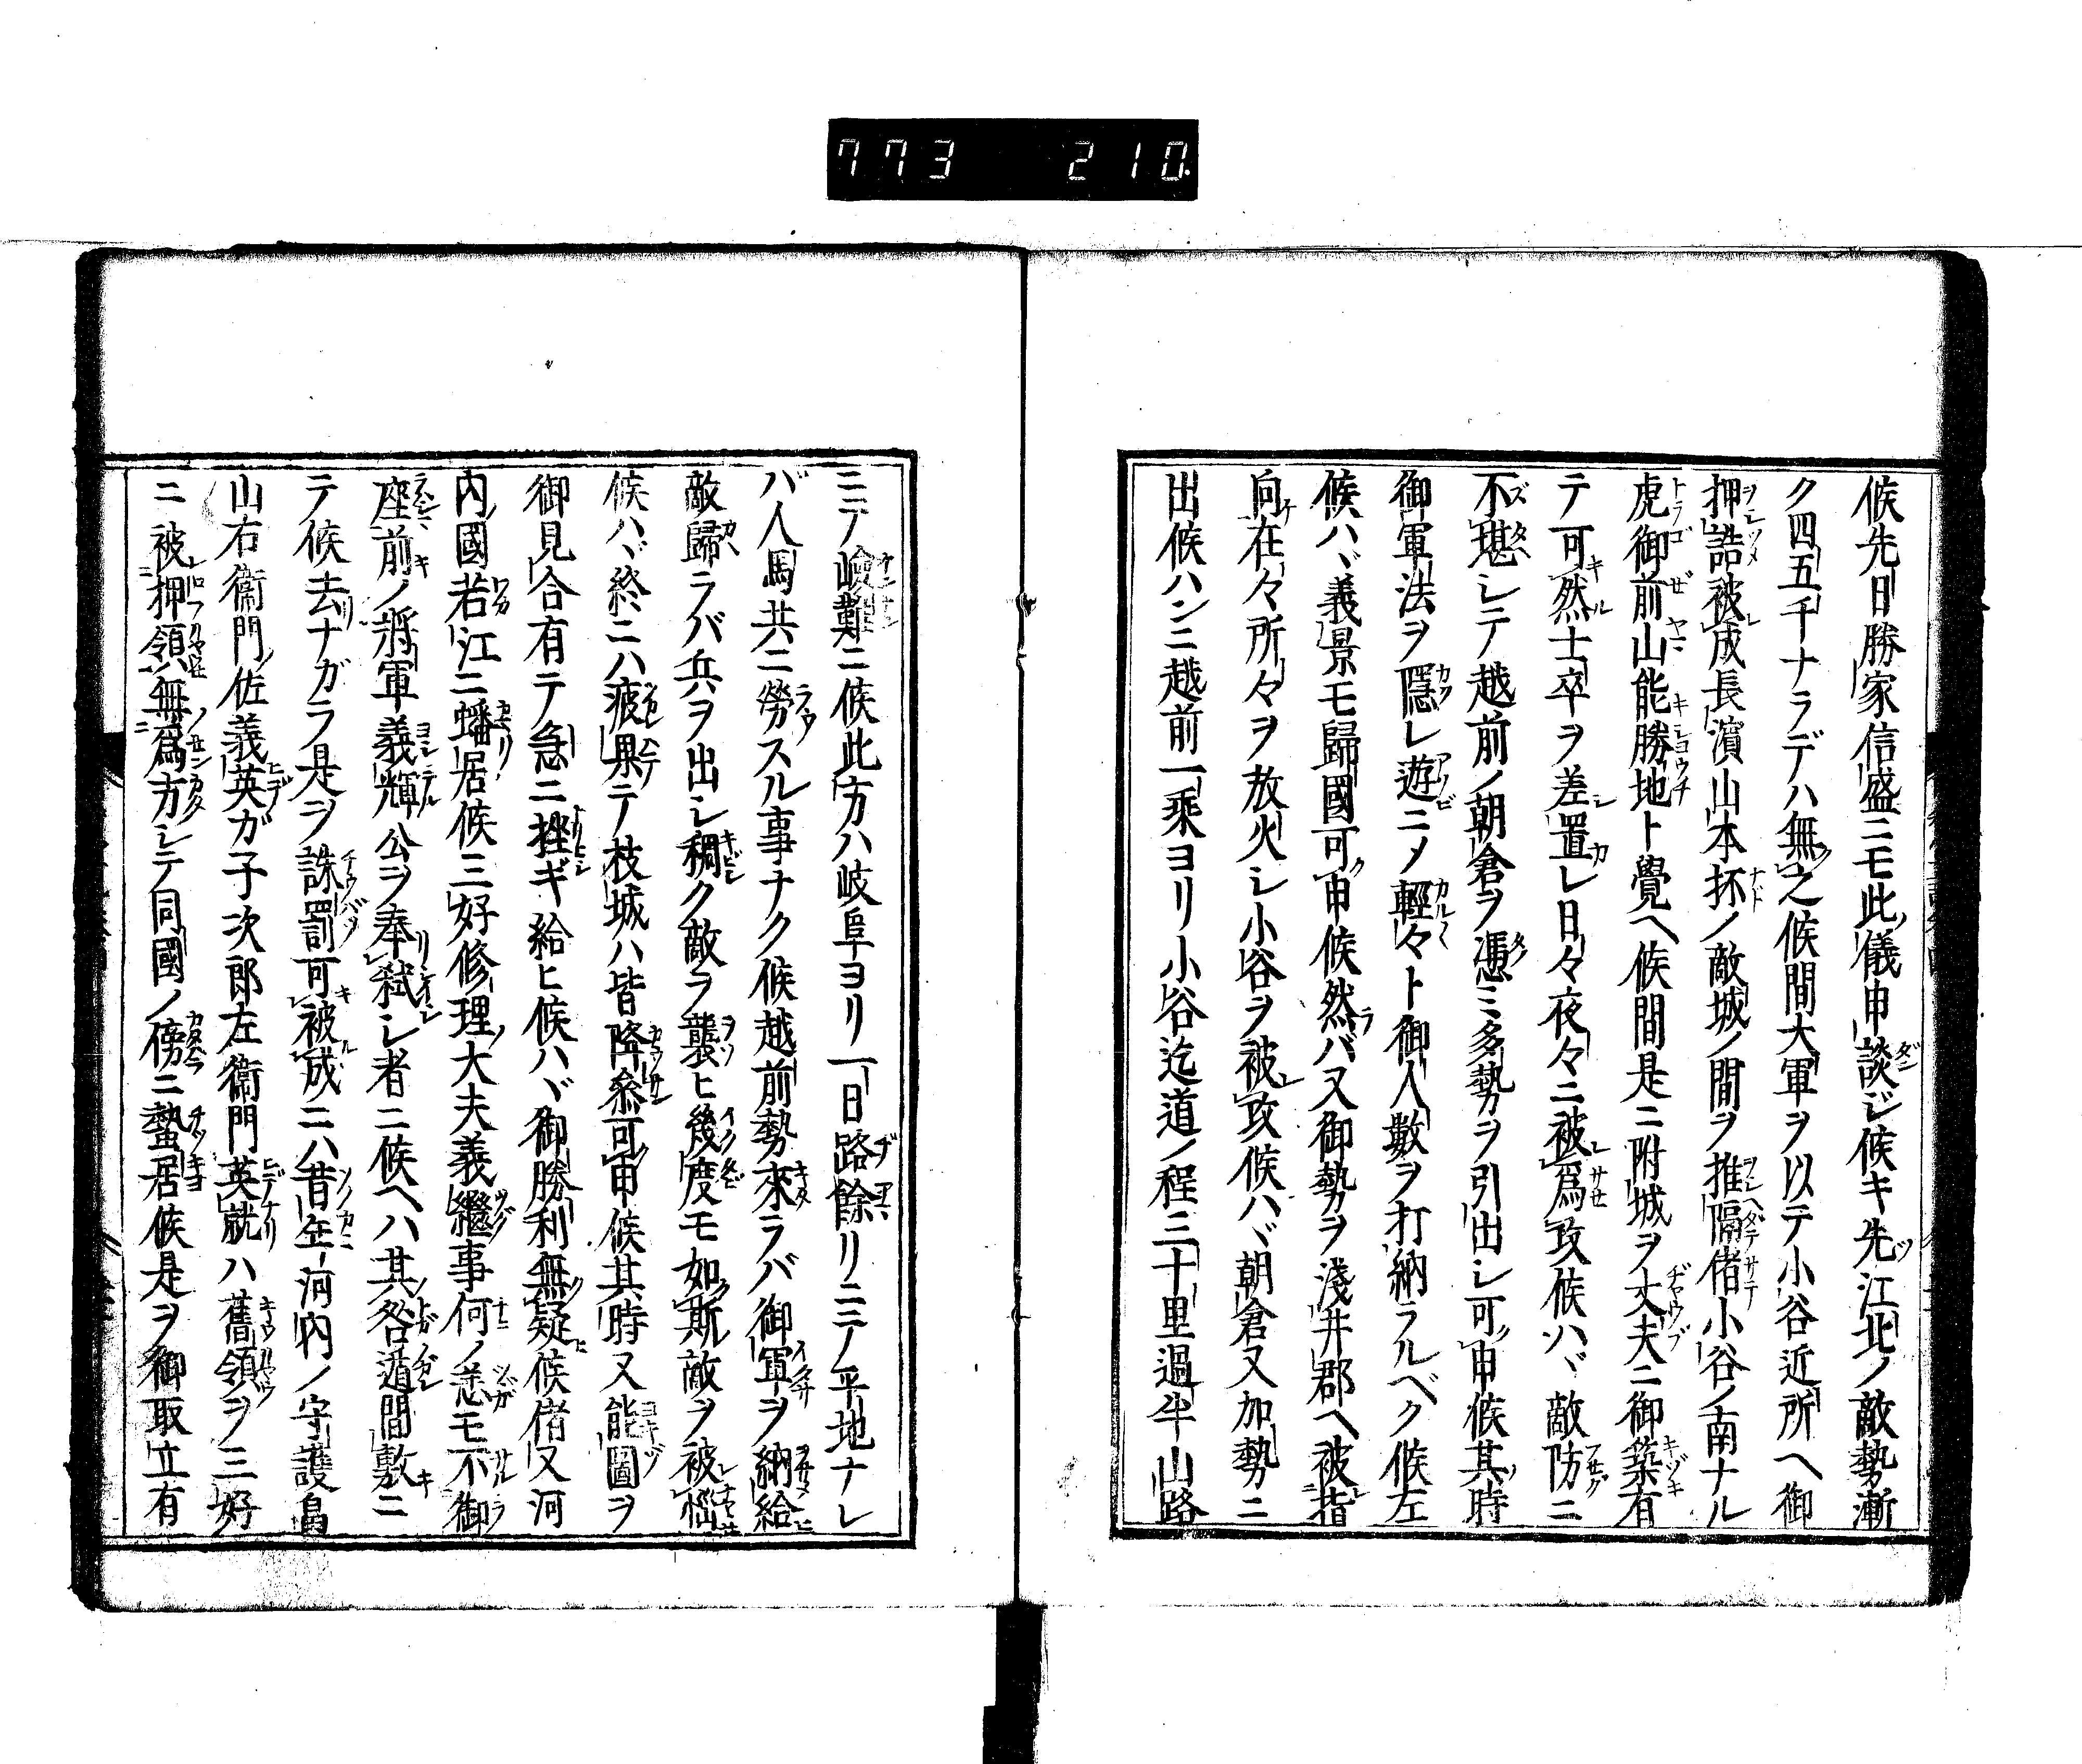 773 210
候先日勝家信盛ニモ此儀申談ジ候キ先江北ノ敵勢漸
ク四五千ナラデハ無之候間大軍ヲ以テ小谷近所ヘ御
押詰被成長濱山本抔ノ敵城ノ間ヲ推隔偖小谷ノ南ナル
虎御前山能勝地ト覺ヘ候間是ニ附城ヲ丈夫ニ御築有
テ可然士卒ヲ差置レ日々夜々ニ被爲攻候ハヾ敵防ニ
不堪シテ越前ノ朝倉ヲ憑ミ多勢ヲ引出シ可申候其時
御軍法ヲ隱レ遊ニノ輕々ト御人數ヲ打納ラルベク候左
候ハヾ義景モ歸國可申候然バ又御勢ヲ淺井郡ヘ被指
向在々所々ヲ放火シ小谷ヲ被攻候ハヾ朝倉又加勢ニ
出候ハンニ越前一乘ヨリ小谷迄道ノ程三十里過半山路
ニテ嶮難ニ候此方ハ岐阜ヨリ一日路餘リニ三ノ平地ナレ
バ人馬共ニ勞スル事ナク候越前勢來ラバ御軍ヲ納給
敵歸ラバ兵ヲ出シ稠ク敵ヲ襲ヒ幾度モ如斯敵ヲ被惱
候ハヾ終ニハ疲果テ枝城ハ皆降參可申候其時又能圖ヲ
御見合有テ急ニ挫ギ給ヒ候ハヾ御勝利無疑候偖又河
内國若江ニ蟠居候三好修理大夫義繼事何ノ恙モ不御
座前ノ將軍義輝公ヲ奉弑シ者ニ候ヘハ其咎遁間敷ニ
テ候去ナガラ是ヲ誅罰可被成ニハ昔年河内ノ守護畠
山右衞門佐義英ガ子次郎左衞門英就ハ舊領ヲ三好
ニ被押領無爲方シテ同國ノ傍ニ蟄居候是ヲ御取立有